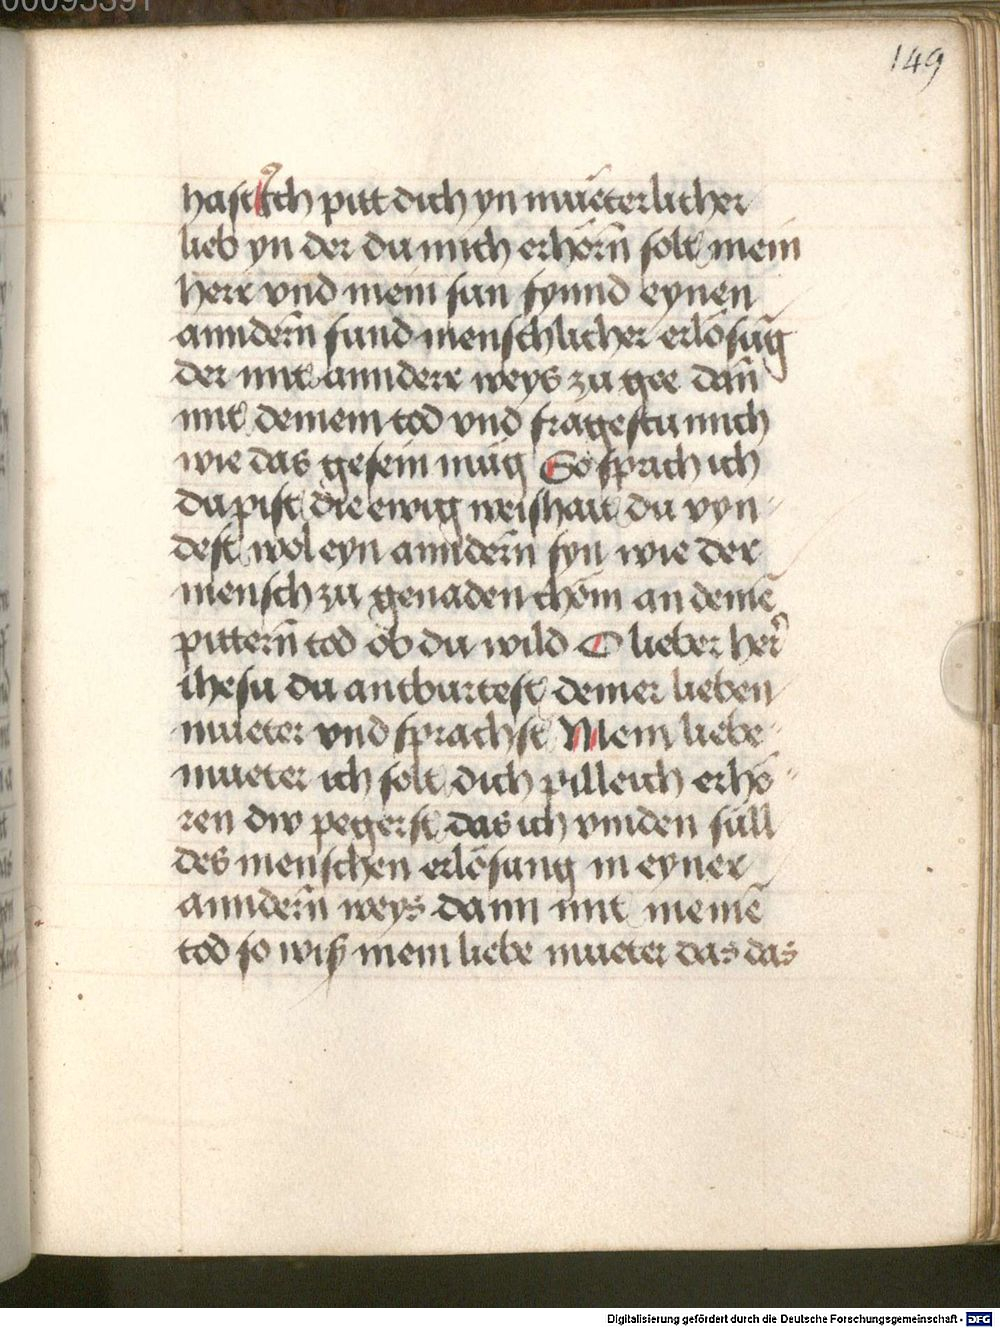 149
hast Ich pitt dich yn müeterlicher
lieb yn der du mich erhörn̄ solt mein
herr vnd mein sun fynnd eynen
anndern̄ fund menschlicher erlösūg
der mit anndere weys zu gee dan̄
mit deinem tod vnd fragestu mich
wie das gesein müg So sprich ich
du pist die ewig weishait du vyn-
dest wol eyn anndern̄ syn wie der
mensch zu genaden chöm an deinē
pittern̄ tod ob du wild O lieber her̄
ihesu du antburtest deiner lieben
mueter vnd sprachst Mein liebe
mueter ich solt dich pilleich erhö-
ren diw pegerst das ich vinden süll
des menschen erlösung in eyner
anndern̄ weys dann mit meinē
tod so wiß mein liebe mueter das das
Digitalisierung gefördert durch die Deutsche Forschungsgemeinschaft - DFG